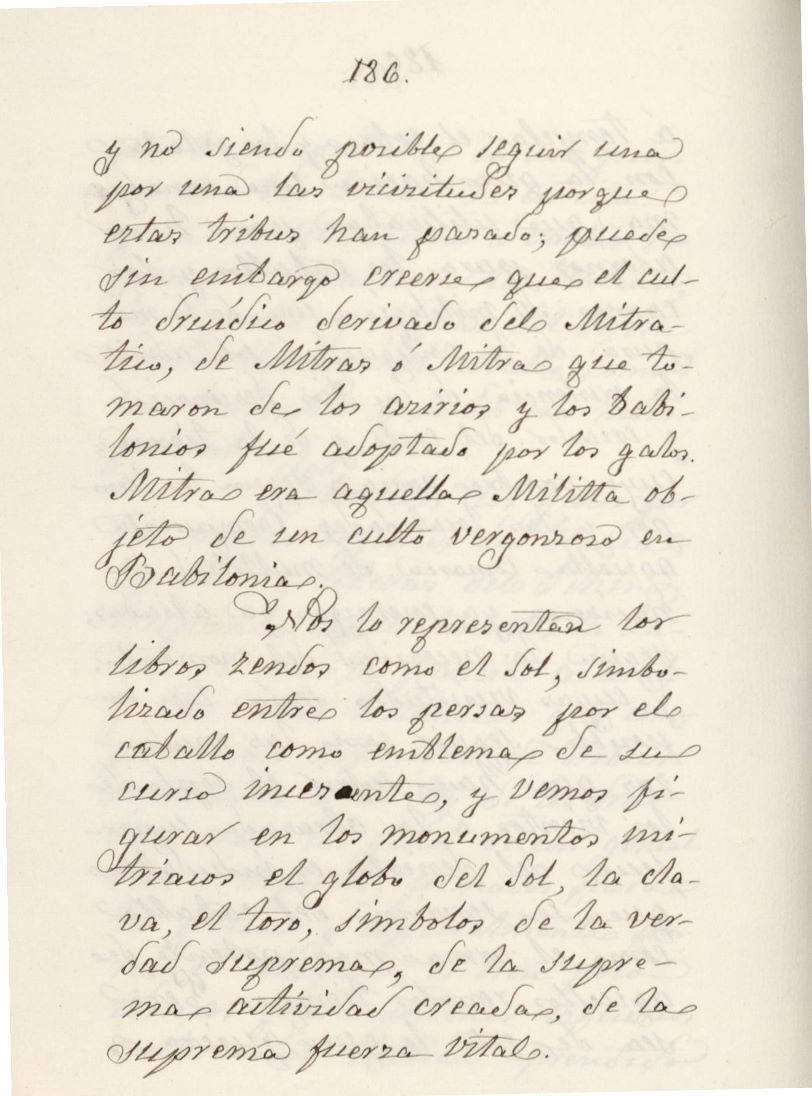 186.
y no siendo posible seguir una
por una las vicisitudes porque
estas tribus han pasado; puede
sin embargo creerse que el cul-
to druídico derivado del Mitra-
tico, de Mitras ó Mitra que to-
maron de los asirios y los babi-
lonios fué adoptado por los galos.
Mitra era aquella Militta ob-
jeto de un culto vergonzoso en
Babilonia.
Nos lo representan los
libros zendos como el Sol, simbo-
lizado entre los persas por el
caballo como emblema de su
curso incesante, y vemos fi-
gurar en los monumentos mi-
triacos el globo del Sol, la cla-
va, el toro, simbolos de la ver-
dad suprema, de la supre-
ma actividad creada, de la
suprema fuerza vital.